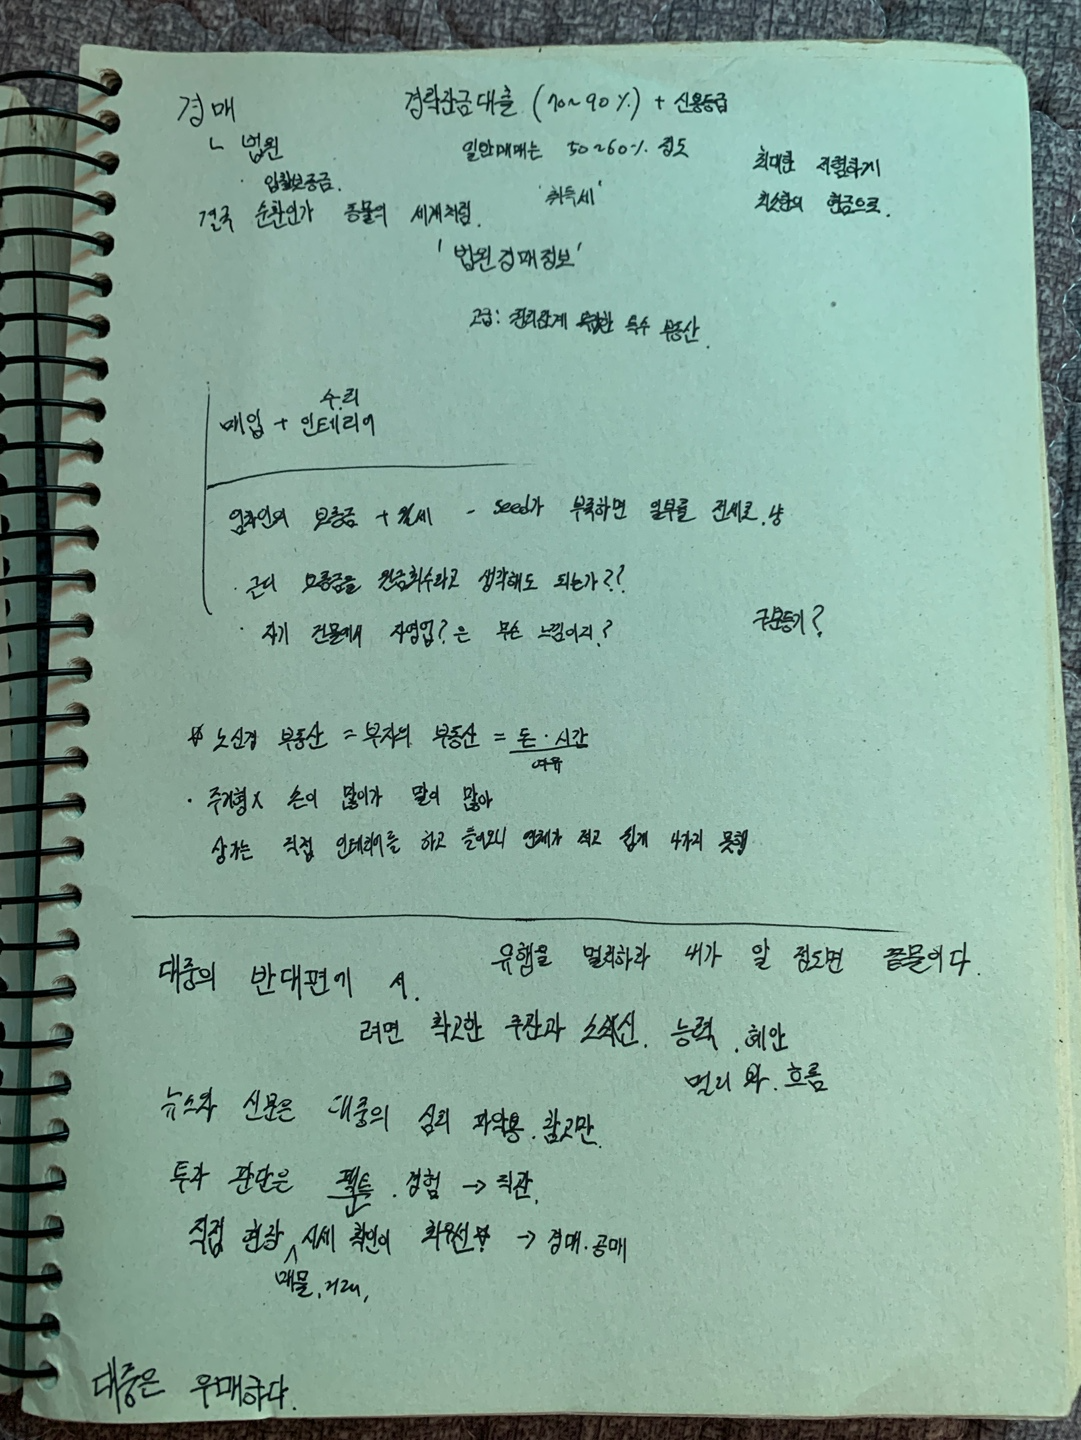 경매
경락잔금대출 (70~90%) + 신용등급
ㄴ 법원
일반매매는 50~60% 정도
최대한 저렴하게
· 입찰보증금.
'취득세'
최소한의 현금으로.
결국 순환인가 동물의 세계처럼.
'법원경매정보'
고급: 권리관계 복잡한 특수 부동산.
수리
매입 + 인테리어
임차인의 보증금 + 월세 - seed가 부족하면 일부를 전세로.
· 근데 보증금을 원금회수라고 생각해도 되는가??
· 자기 건물에서 자영업?은 무슨 느낌이지?
구분등기?
노신경 부동산 = 부자의 부동산 = 돈·시간
여유
· 주거형X 손이 많이가 말이 많아
상가는 직접 인테리어를 하고 들어오니 연체가 적고 쉽게 나가지 못해
대중의 반대편에 서.
유행을 멀리하라 내가 알 정도면 끝물이다.
려면 확고한 주관과 소신. 능력. 혜안
멀리 봐. 흐름
뉴스와 신문은 대중의 심리 파악용. 참고만.
투자 판단은 경험 → 직관.
직접 현장 시세 확인이 최우선 → 경매·공매
매물, 거래,
대중은 우매하다.